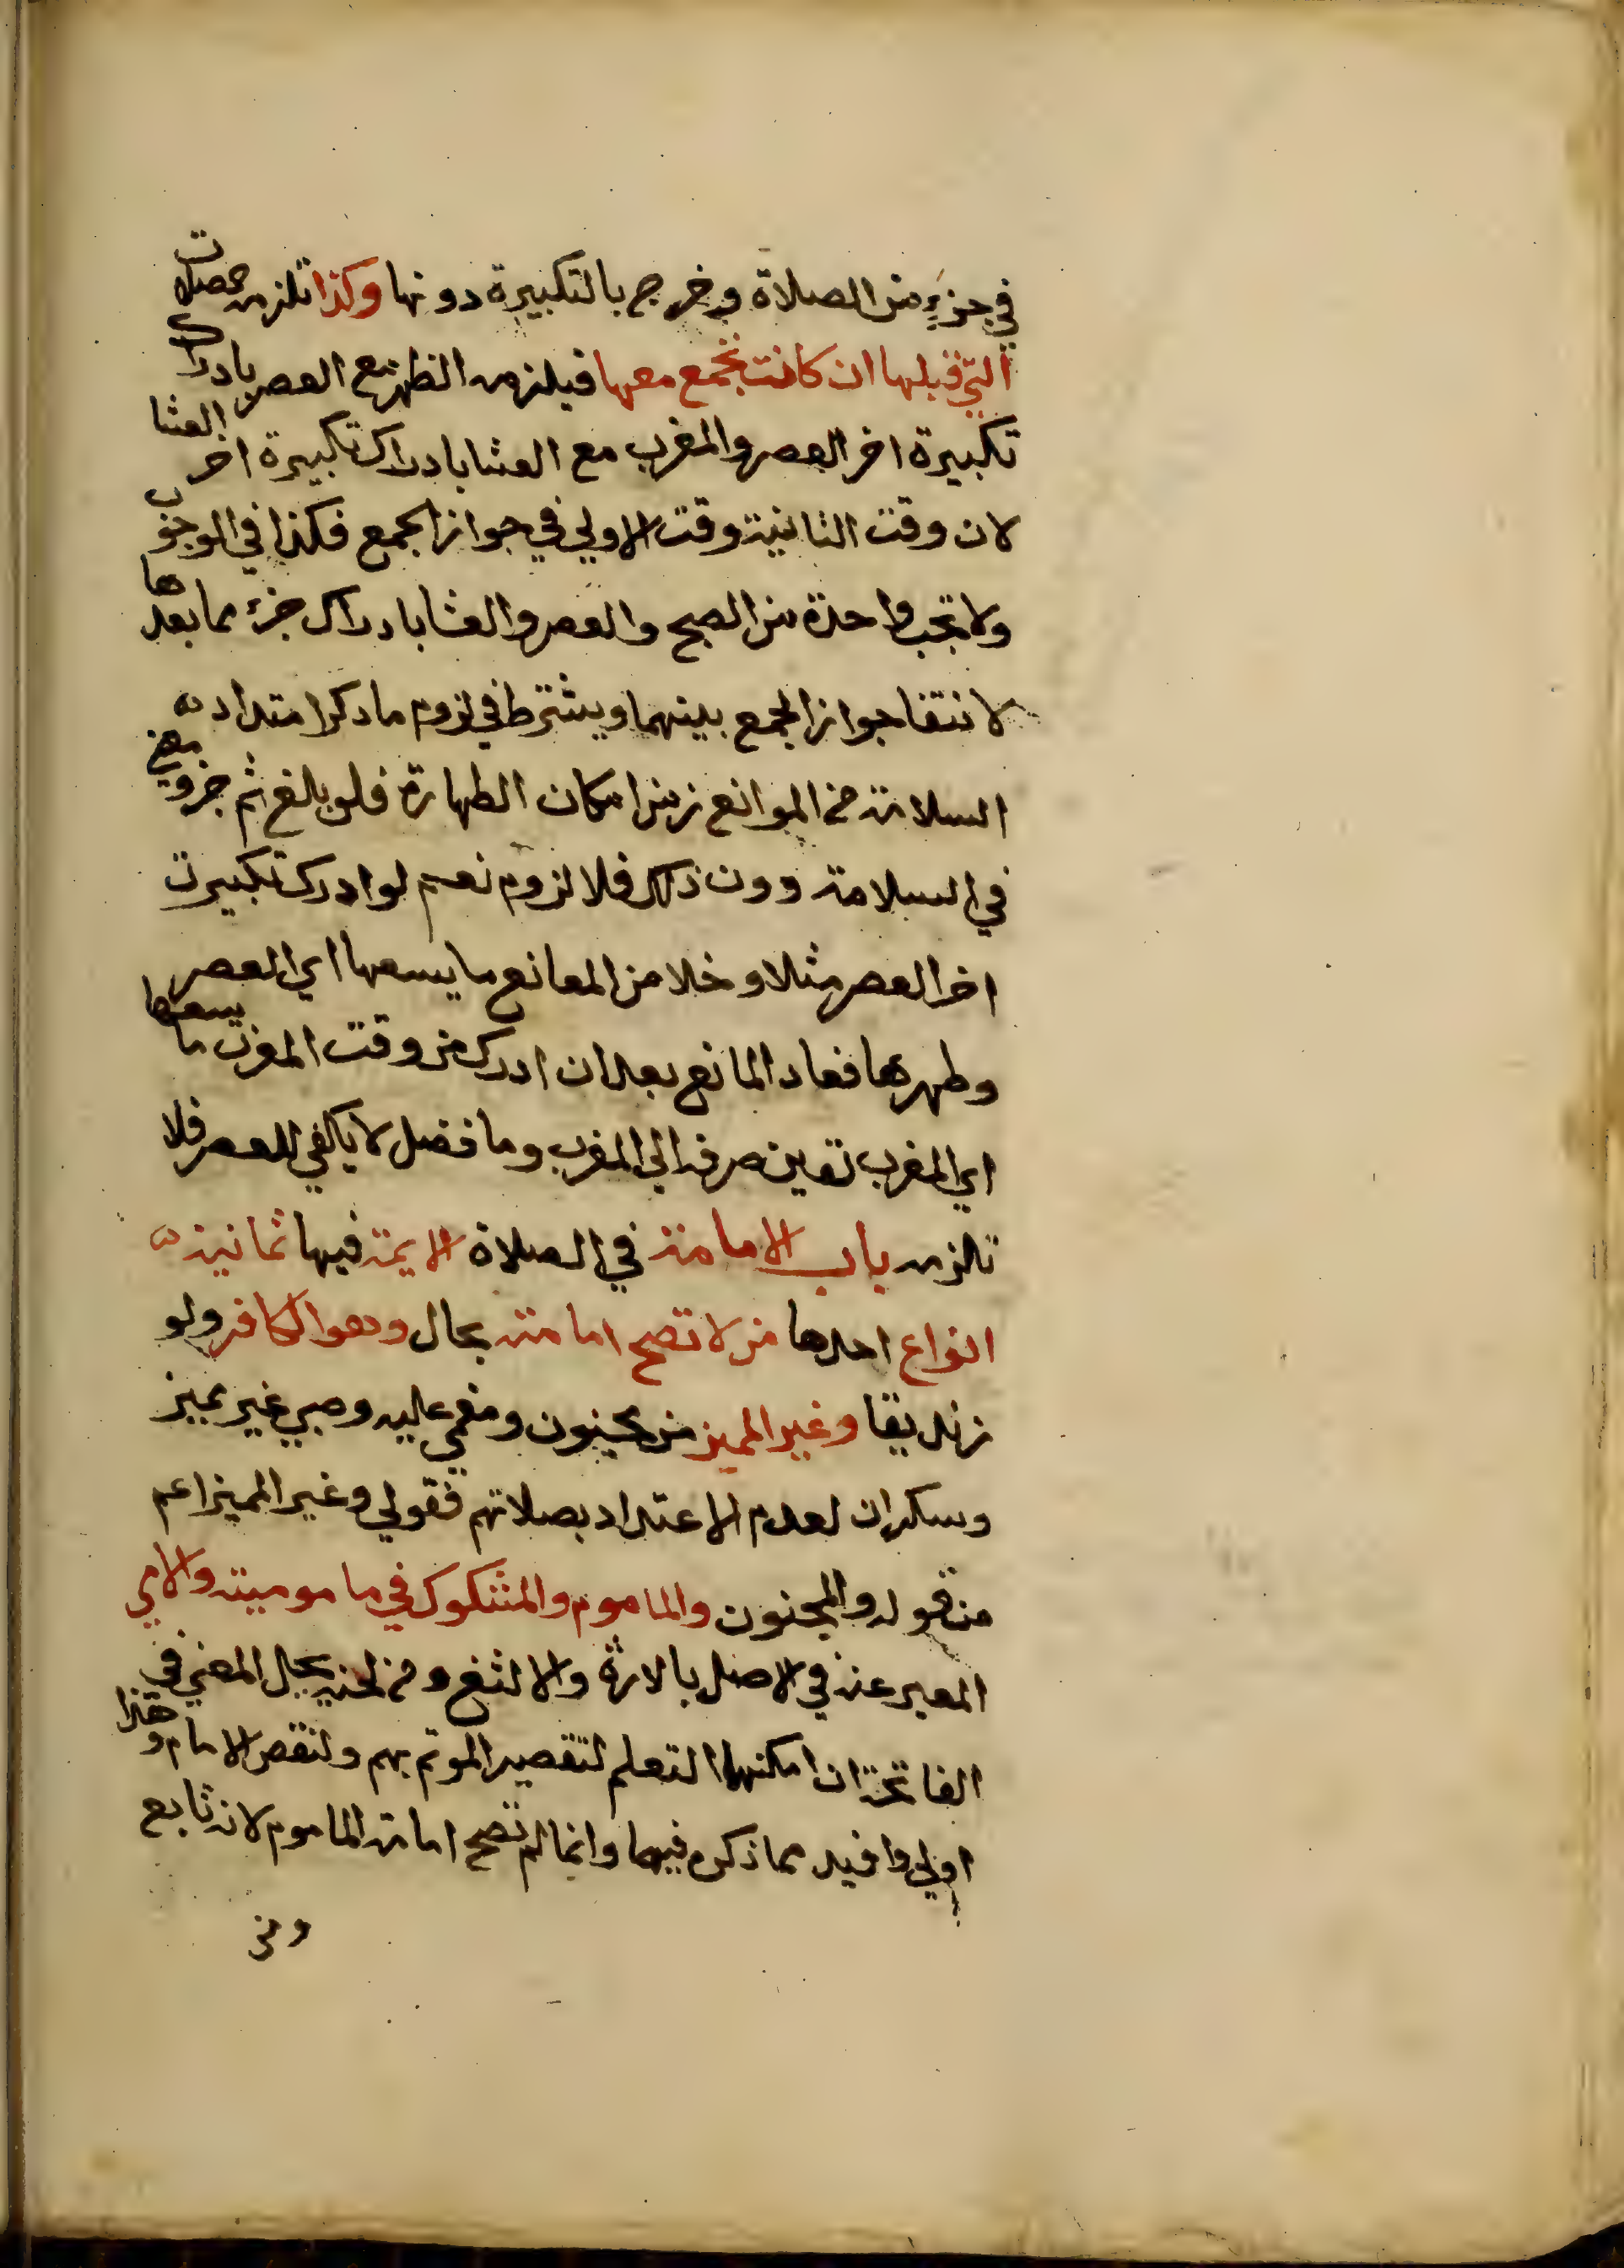 في جزءٍ من الصلاة وخرج بالتكبيرة دونها وكذا تلزمه صلات
التي قبلها ان كانت تجمع معها فيلزمه الظهر مع العصر بادراك
تكبيرة اخر العصر والمغرب مع العشا بادراك تكبيرة اخر العشا
لان وقت الثانية وقت الاولي في جواز الجمع فكذا في الوجوب
ولا تجب واحدة من الصبح والعصر والعشا بادراك جزء مما بعدها
لانتفا جواز الجمع بينهما ويشترط في لزوم ما ذكر امتداد
السلامة من الموانع زمن امكان الطهارة فلو بلغ ثم جن
في السلامة دون ذلك فلا لزوم نعم لو ادرك تكبيرة
اخر العصر مثلا وخلا من المعانع ما يسعها اي العصر
وطهرها فعاد المانع بعد ان ادرك من وقت المغرب ما يسعها
اي المغرب تعين صرفه الي المغرب وما فضل لا يكفي للعصر فلا
تلزمه باب الامامة في الصلاة الايمة فيها ثمانية
انواع احدها من لا تصح امامته بحال وهو الكافر ولو
زنديقا وغير المميز من مجنون ومغمي عليه وصبي غير مميز
وسكران لعدم الاعتداد بصلاتهم فقولي وغير المميز اعم
من قوله والمجنون والماموم والمشكوك في ماموميته والامي
المعبر عنه في الاصل بالارث والالثغ ومن لحنه يحيل المعني في
الفاتحة ان امكنهما التعلم لتقصير الموتم بهم ولنقص الامام وهذا
اولي وافيد مما ذكره فيهما وانما لم تصح امامة الماموم لانه تابع
ومن